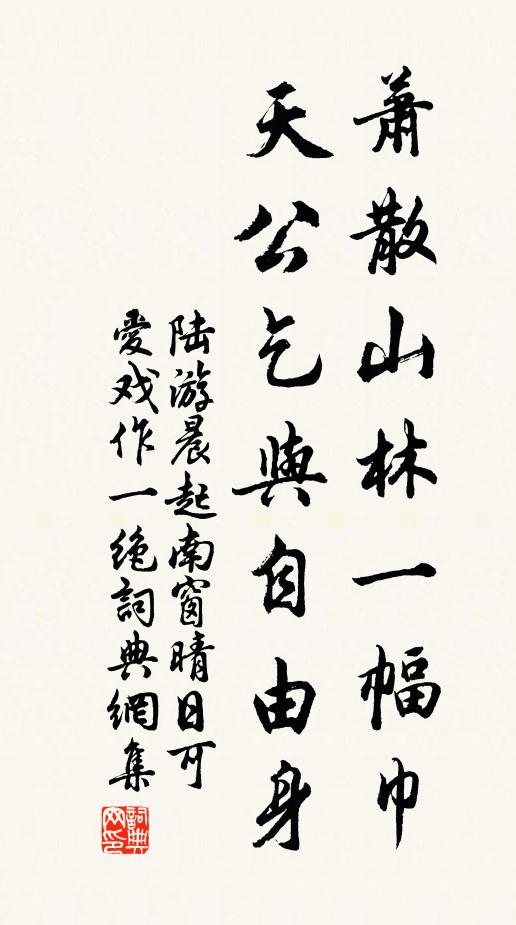 萧散山林一幅巾
天公乞與自由身
陆游晨起南窗晴日可
愛戏作一绝詞典網集
詞典
网印